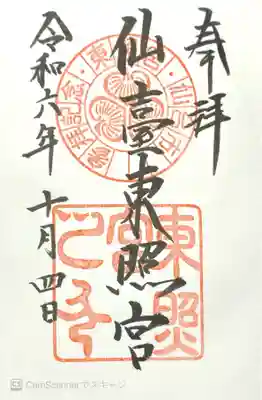 奉拝
仙臺東照宮
令和六年
十月四日
参拝記念
東照宮
CamScannerでスキャン